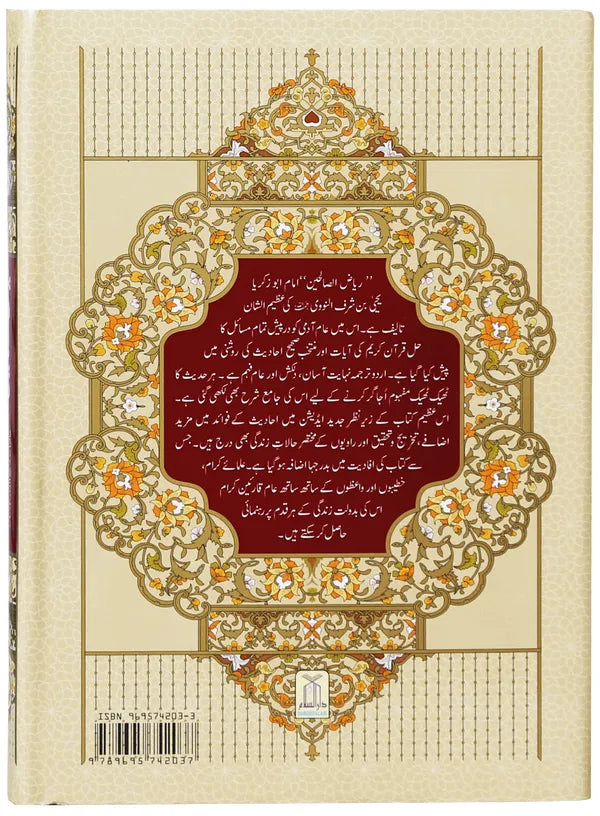 ’’ریاض الصالحین‘‘ امام ابو زکریا
یحییٰ بن شرف النووی رحمہ اللہ کی عظیم الشان
تالیف ہے۔ اس میں عام آدمی کو درپیش تمام مسائل کا
حل قرآن کریم کی آیات اور منتخب صحیح احادیث کی روشنی میں
پیش کیا گیا ہے۔ اردو ترجمہ نہایت آسان، دلکش اور عام فہم ہے۔ ہر حدیث کا
ٹھیک ٹھیک مفہوم اُجاگر کرنے کے لیے اس کی جامع شرح بھی لکھی گئی ہے۔
اس عظیم کتاب کے زیر نظر جدید ایڈیشن میں احادیث کے فوائد میں مزید
اضافے، تخریج و تحقیق اور راویوں کے مختصر حالاتِ زندگی بھی درج ہیں۔ جس
سے کتاب کی افادیت میں بدرجہا اضافہ ہو گیا ہے۔ علمائے کرام،
خطیبوں اور واعظوں کے ساتھ ساتھ عام قارئین کرام
اس کی بدولت زندگی کے ہر قدم پر رہنمائی
حاصل کر سکتے ہیں۔
دارالسلام
DARUSSALAM
ISBN 969574203-3
9 789695 742037